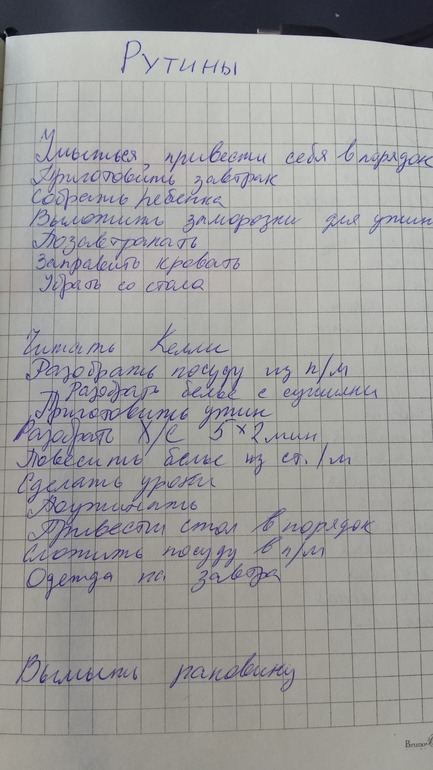 Рутины
Умыться, привести себя в порядок
Приготовить завтрак
Собрать ребенка
Выложить заморозки для ужин
Позавтракать
Заправить кровать
Убрать со стола
Читать Келли
Разобрать посуду из п/м
Разобрать белье с сушилки
Приготовить ужин
Разобрать Х/С 5×2 мин
Повесить белье из ст./м
Сделать уроки
Поужинать
Привести стол в порядок
Сложить посуду в п/м
Одежда на завтра
Вымыть раковину